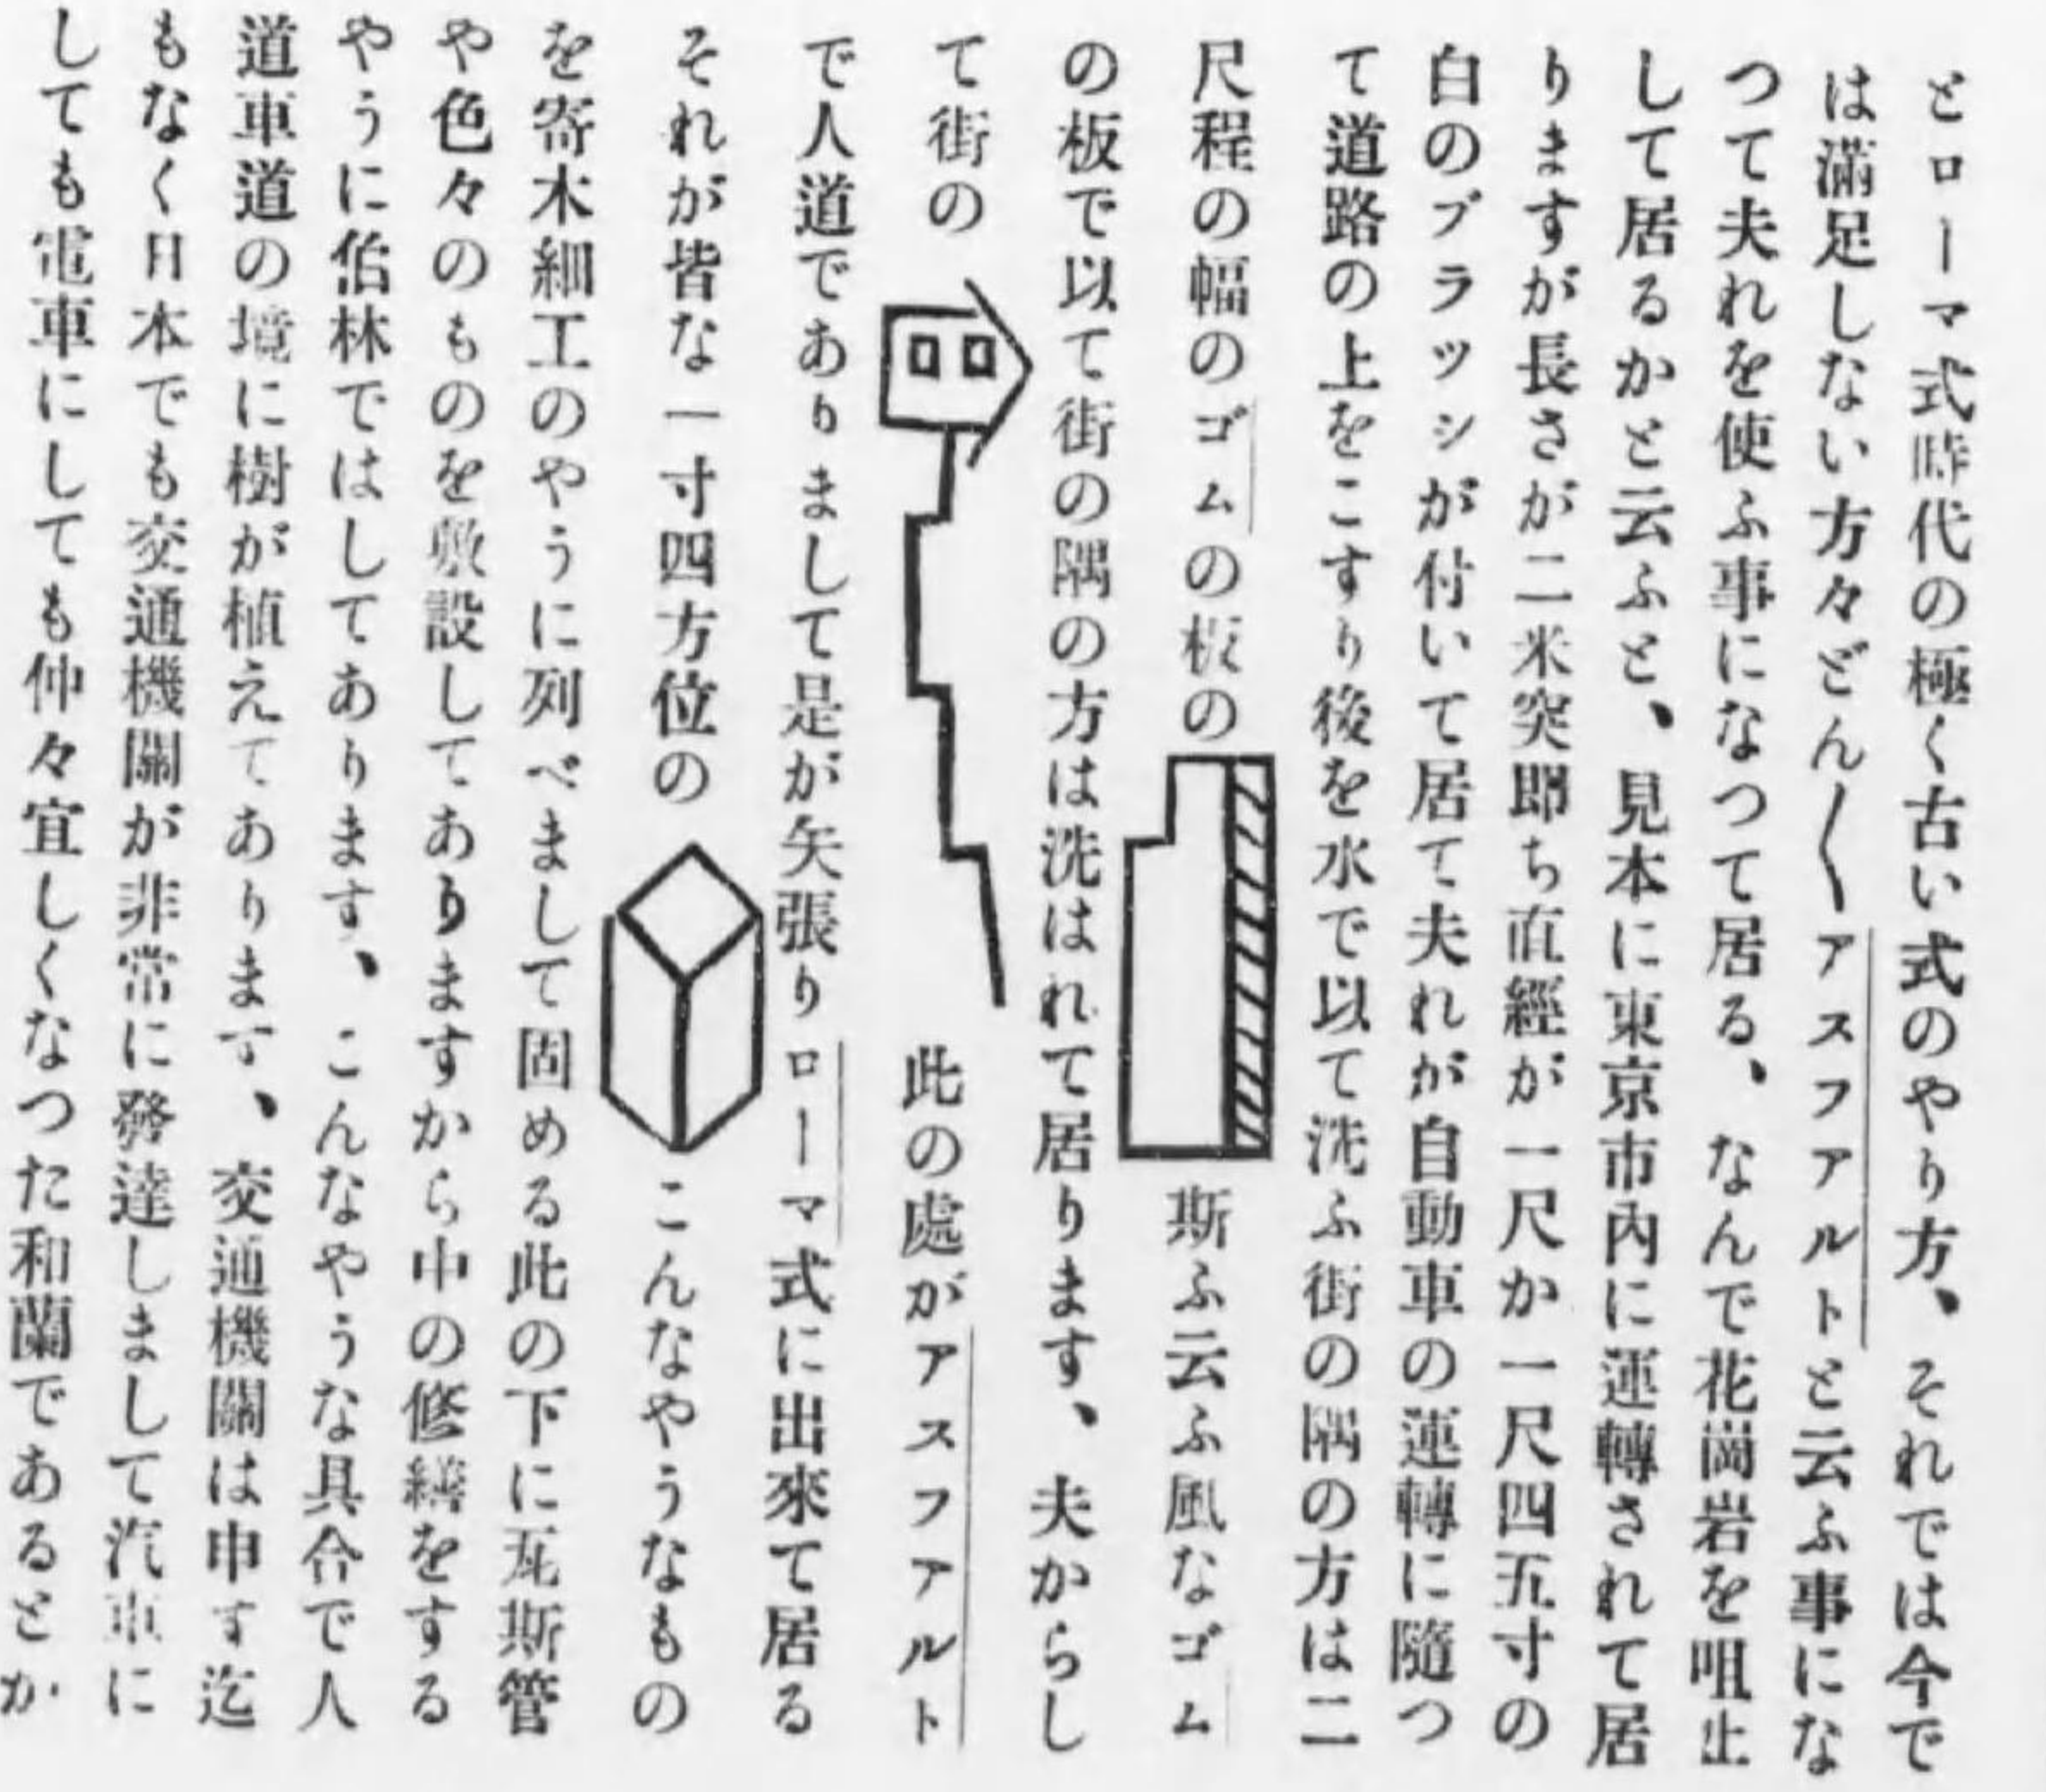 とローマ式時代の極く古い式のやり方、それでは今で
は滿足しない方々どん〱アスフアルトと云ふ事にな
つて夫れを使ふ事になつて居る、なんで花崗岩を咀止
して居るかと云ふと、見本に東京市內に運轉されて居
りますが長さが二米突卽ち直經が一尺か一尺四五寸の
白のブラッシが付いて居て夫れが自動車の運轉に隨つ
て道路の上をこすり後を水で以て洗ふ街の隅の方は二
尺程の幅のゴムの板の
斯ふ云ふ風なゴム
の板で以て街の隅の方は洗はれて居ります、夫からし
て街の
此の處がアスフアルト
で人道でありまして是が矢張りローマ式に出來て居る
それが皆な一寸四方位の
こんなやうなもの
を寄木細工のやうに列べまして固める此の下に瓦斯管
や色々のものを敷設してありますから中の修繕をする
やうに伯林ではしてあります、こんなやうな具合で人
道車道の境に樹が植えてあります、交通機關は申す迄
もなく日本でも交通機關が非常に發達しまして汽車に
しても電車にしても仲々宜しくなつた和蘭であるとか